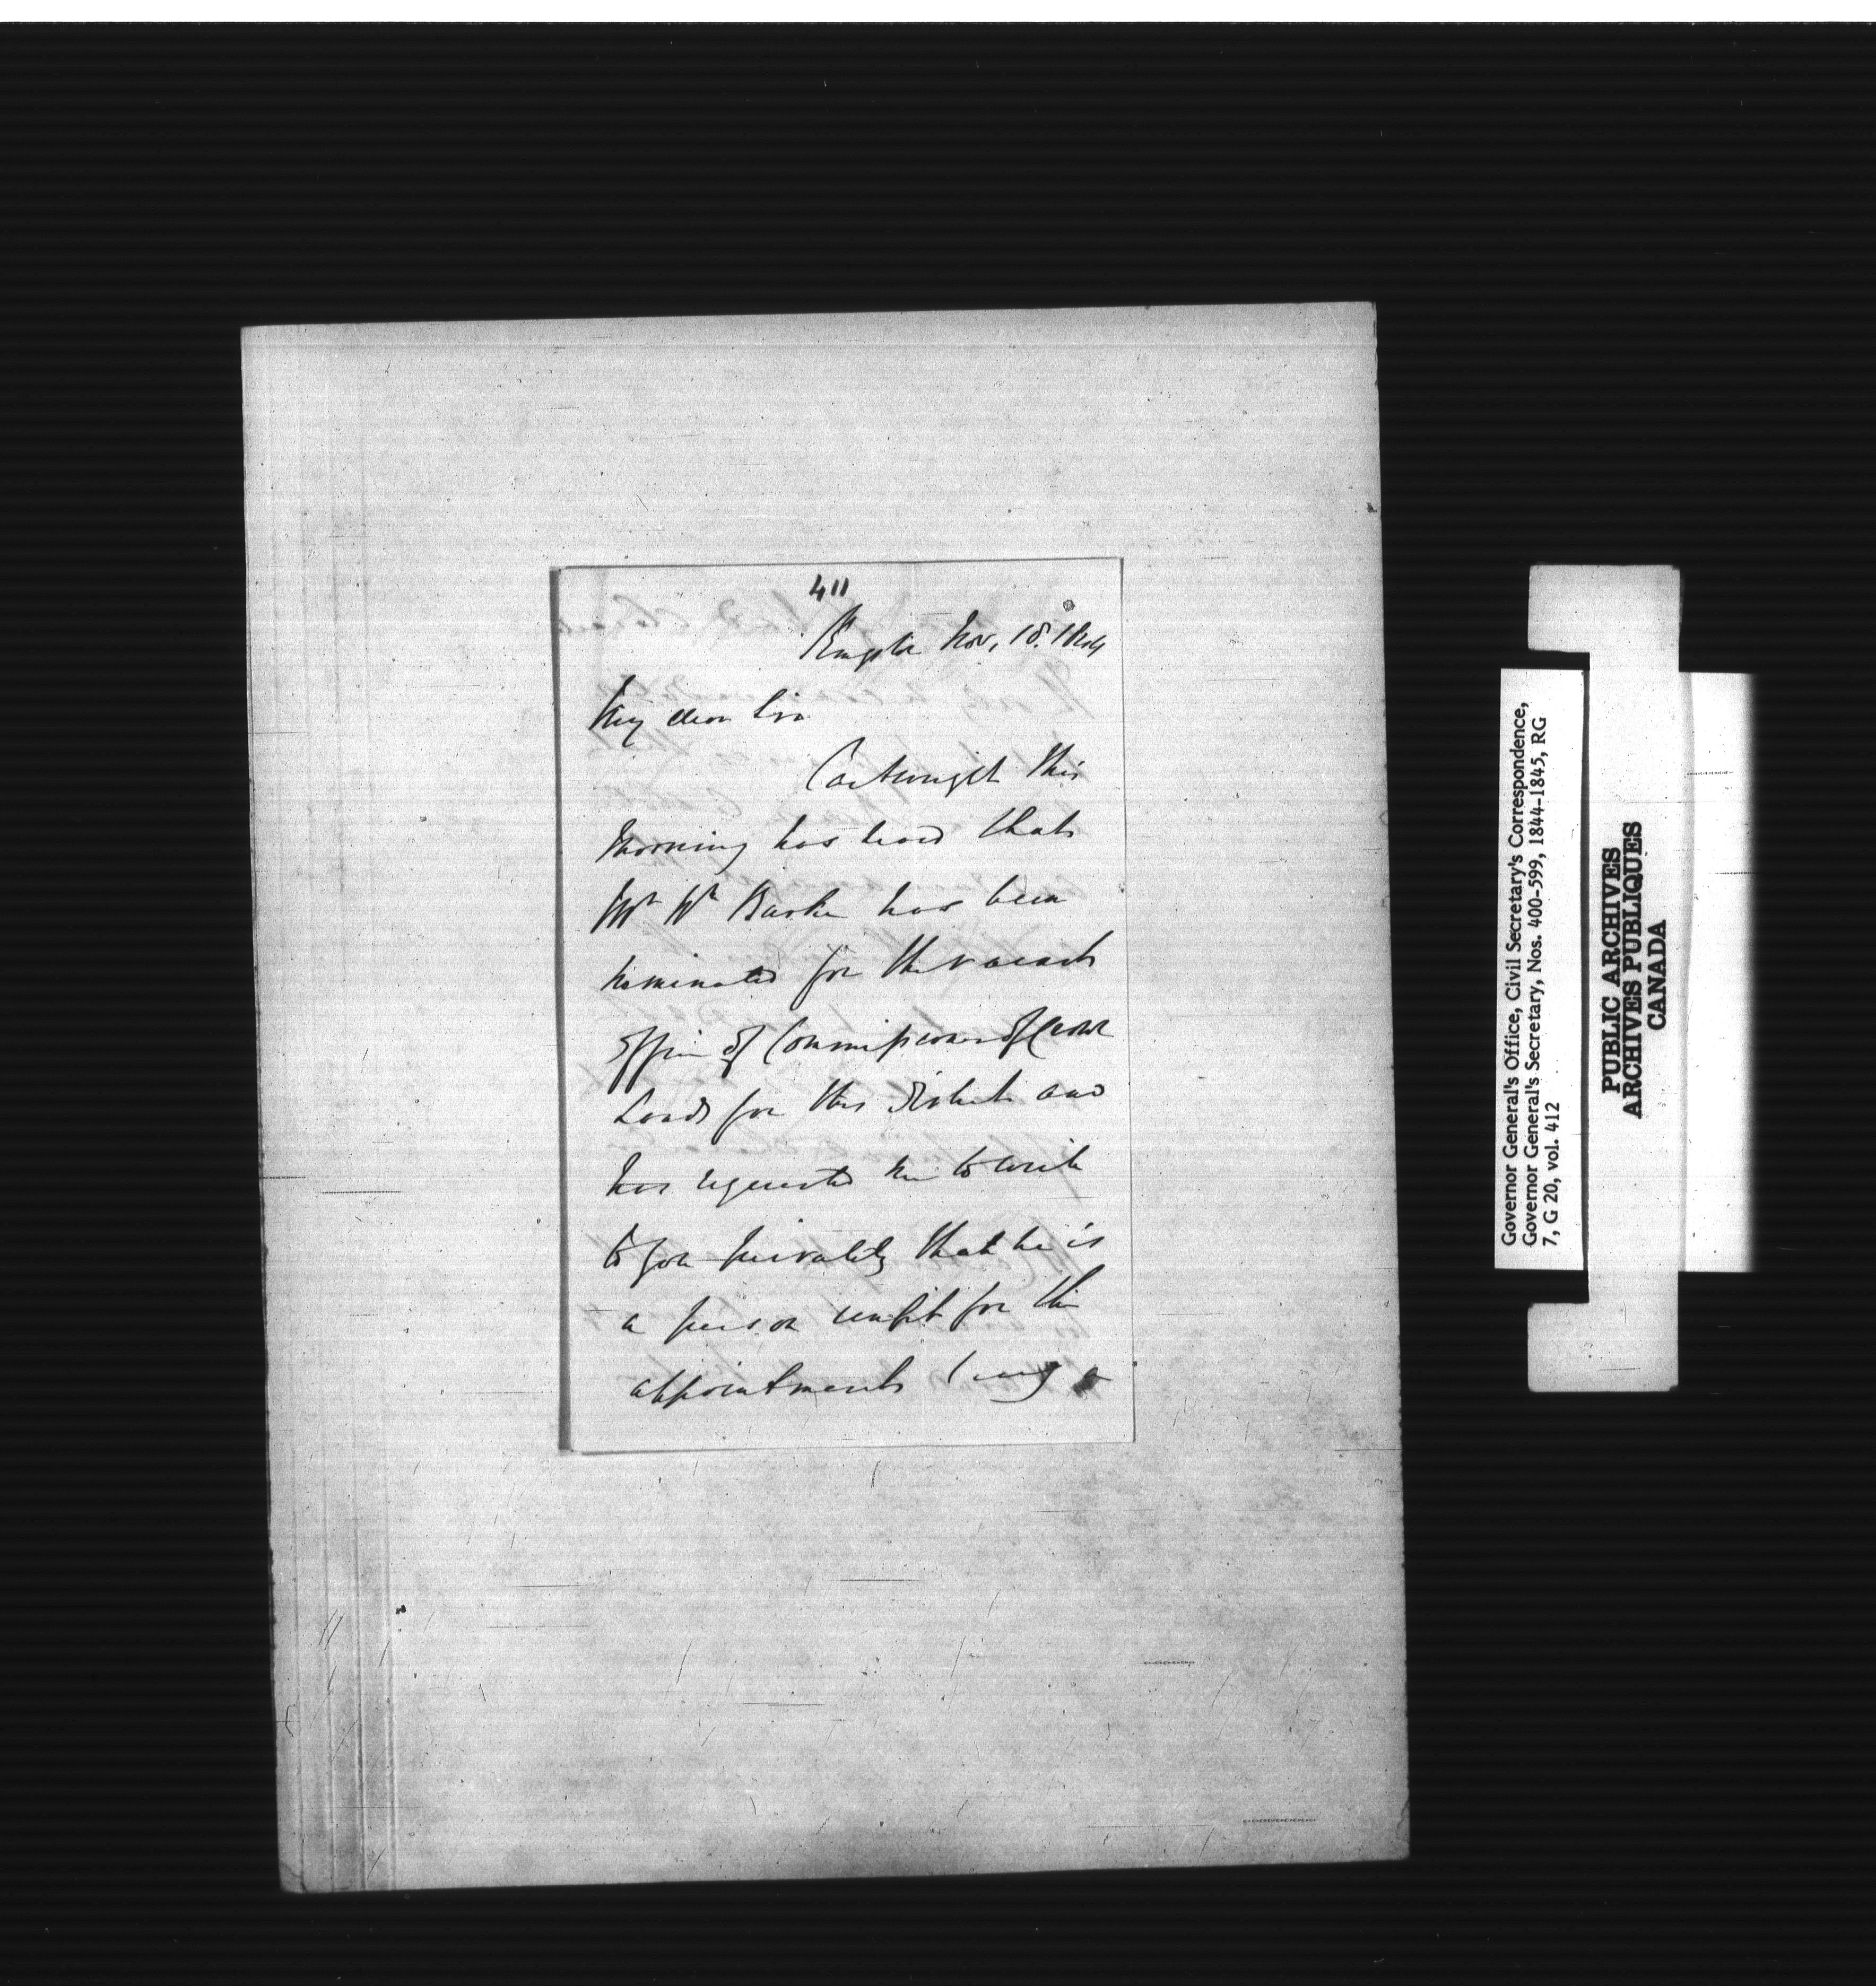 411
Kingston Nov, 18. 1844
My dear Sir
Cartwright this
morning has heard that
Mr Wm Burke has been
nominated for the vacant
office of Commissioner of Crown
Lands for this District and
has requested me to write
to you privately that he is
a person unfit for the
appointment being a
Governor General's Office, Civil Secretary's Correspondence,
Governor General's Secretary, Nos. 400-599, 1844-1845, RG
7, G 20, vol. 412
PUBLIC ARCHIVES
ARCHIVES PUBLIQUES
CANADA